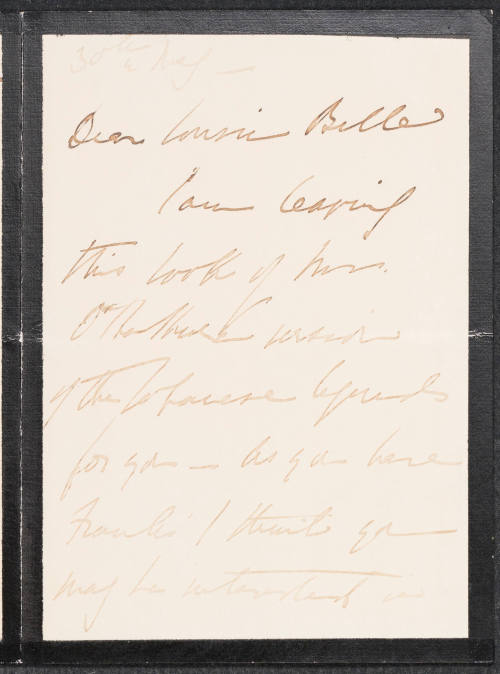 30th May —
Dear Cousin Belle
I am leaving
this book of Mrs.
version
of the Japanese legends
for you — As you have
Frank's I think you
may be interested in